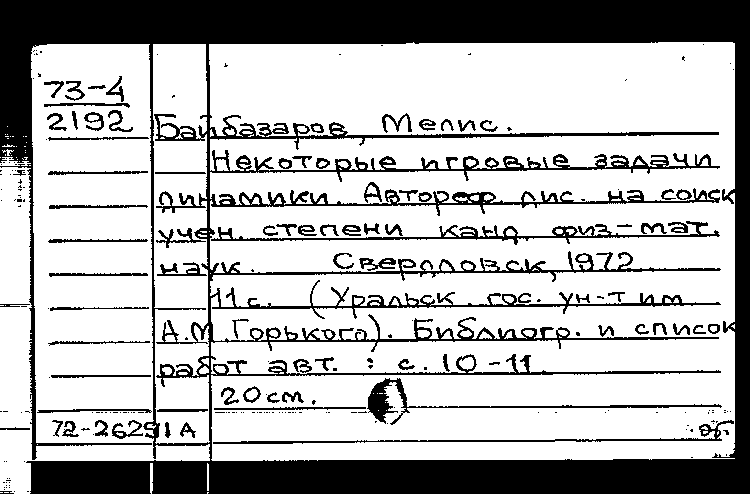 73-4
2192 Байбазаров, Мелис.
Некоторые игровые задачи
динамики. Автореф. дис. на соиск
учен. степени канд. физ.-мат.
наук. Свердловск, 1972
11 с. (Уральск. гос. ун-т им
А.М.Горького). Библиогр. и список
работ авт. : с. 10-11.
20 см.
72-26291А